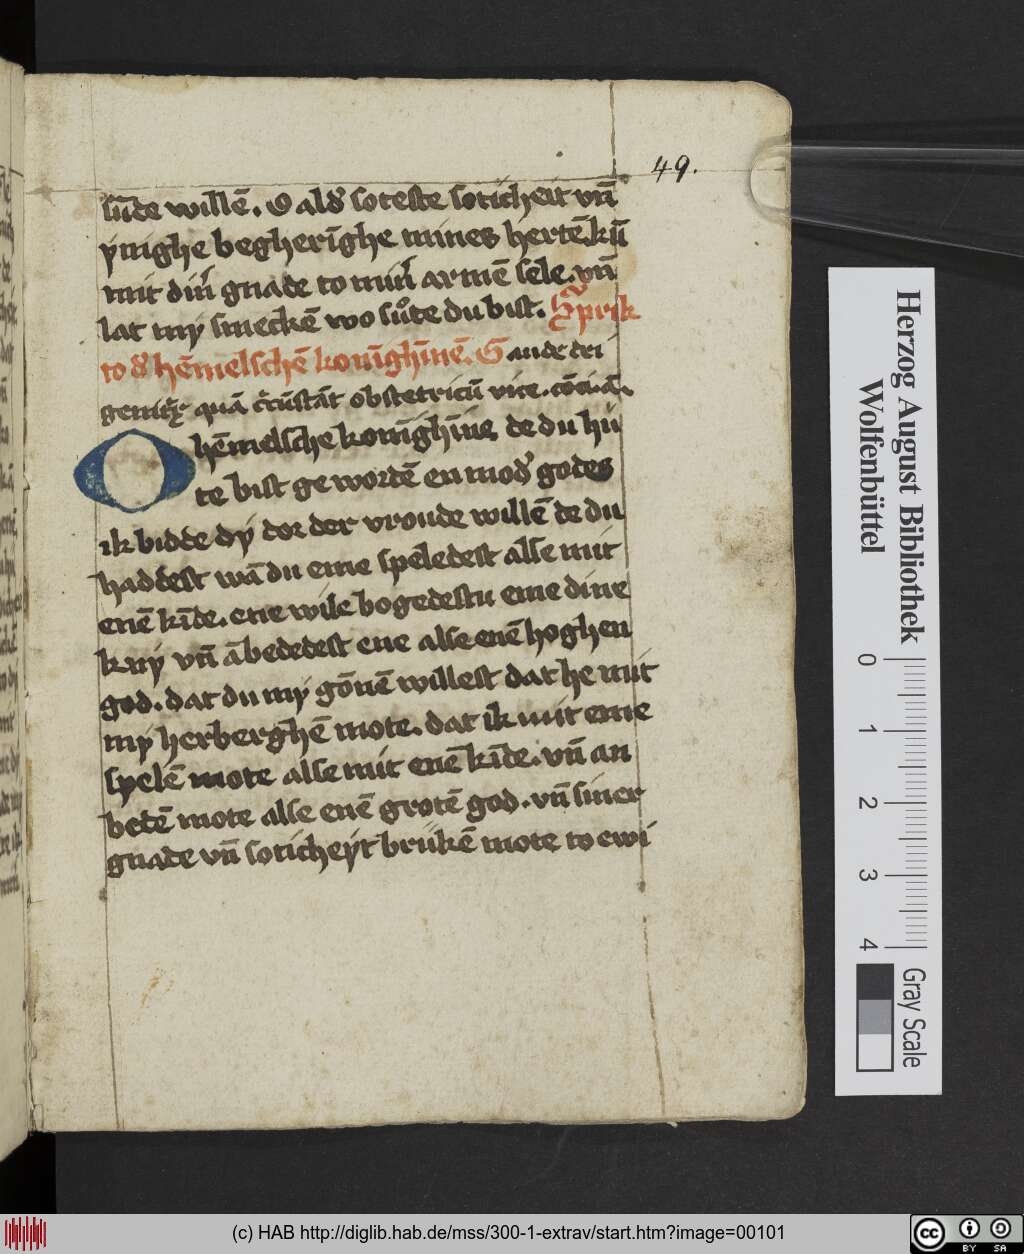 49.
sūde willē. O alḋ soteste soticheit vn̄
ynighe begherīghe mines hertē. kū
mit dīn̾ gnade to mīn̾ armē sele. vn̄
lat my smeckē wo sůte du bist. Sprik
to ḋ hēmelschē konīghīnē. G aude dei
genit͛x quā cͥcūstāt obstetricū vice.
O hēmelsche konighīne de du hů
te bist ge wordē en moḋ godes
ik bidde dy dor der vroude willē de du
haddest wā du eme speledest alse mit
enē kīde. ene wile bogedestu eme dine
kny vn̄ ābededest ene alse enē hoghen
god. dat du my gōnē willest dat he mit
my herberghē mote. dat ik mit eme
spelē mote alse mit enē kīde. vn̄ an
bedē mote alse enē grotē god. vn̄ siner
gnade vn̄ soticheyt brukē mote to ewi
Herzog August Bibliothek
Wolfenbüttel
0 1 2 3 4
Gray Scale
(c) HAB http://diglib.hab.de/mss/300-1-extrav/start.htm?image=00101
cc BY SA